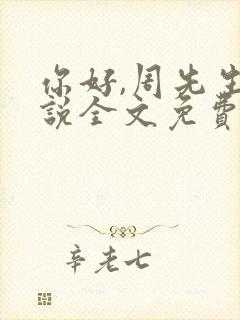 你好,周先生
説全文免費
辛老七